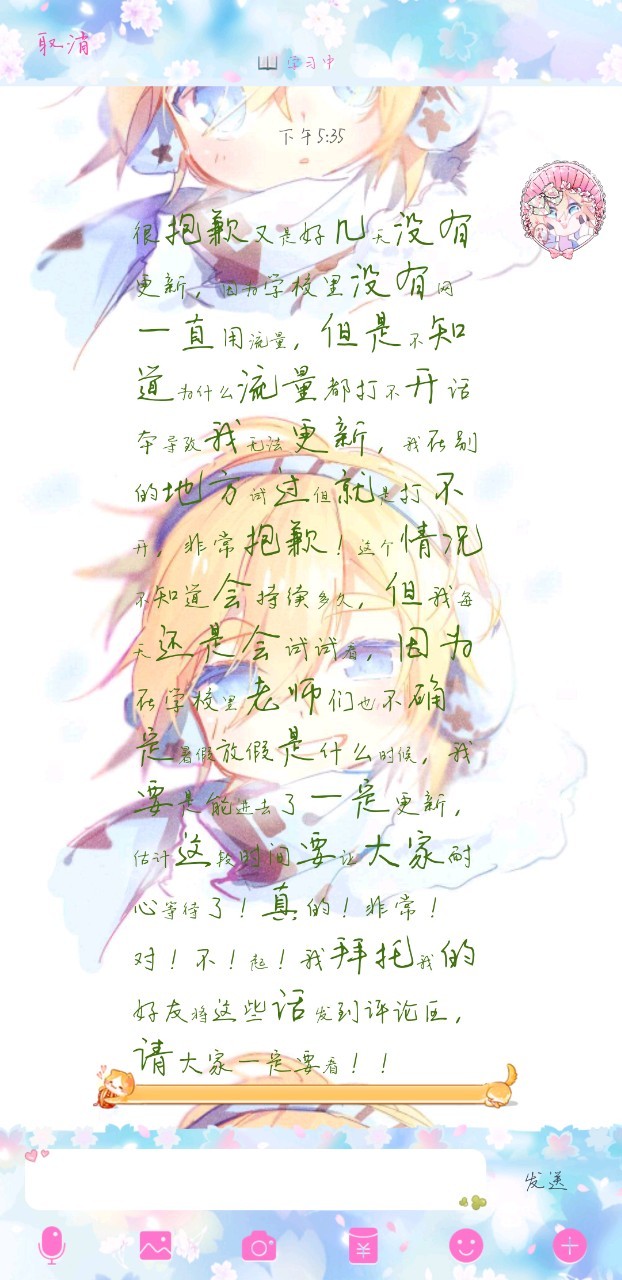 取消
学习中
下午5:35
很抱歉又是好几天没有
更新，因为学校里没有网
一直用流量，但是不知
道为什么流量都打不开话
本导致我无法更新，我在别
的地方试过但就是打不
开，非常抱歉！这个情况
不知道会持续多久，但我每
天还是会试试看，因为
在学校里老师们也不确
定暑假放假是什么时候，我
要是能进去了一定更新，
估计这段时间要让大家耐
心等待了！真的！非常！
对！不！起！我拜托我的
好友将这些话发到评论区，
请大家一定要看！！
发送